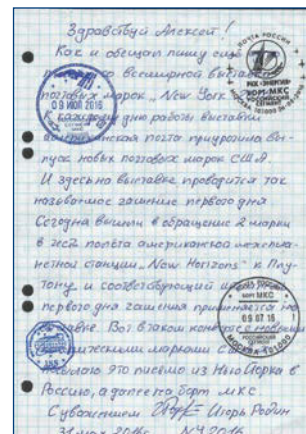 Здравствуй Алексей!
Как и обещал пишу
со всемирной выставки
почтовых марок „New York
каждому дню работы выставки
американская почта приурочила вы-
пуск новых почтовых марок США.
И здесь на выставке проводится так
называемое гашение первого дня
Сегодня вышли в обращение 2 марки
в честь полёта американской межпла-
нетной станции „New Horizons" к Плу-
тону и соответствующий
первого дня гашения применяется на
Вот в таком конверте с новыми
марками
посылаю это письмо из Нью Йорка в
Россию, а далее на борт МКС
С уважением Игорь Родин
31 мая 2016г. NY 2016
ПОЧТА РОССИИ
РКК «ЭНЕРГИЯ»
БОРТ МКС
РОССИЙСКИЙ
СЕГМЕНТ
МОСКВА 101000
09 ИЮЛ 2016
БОРТ МКС
09 07 16
РОССИЙСКИЙ
СЕГМЕНТ
МОСКВА 101000